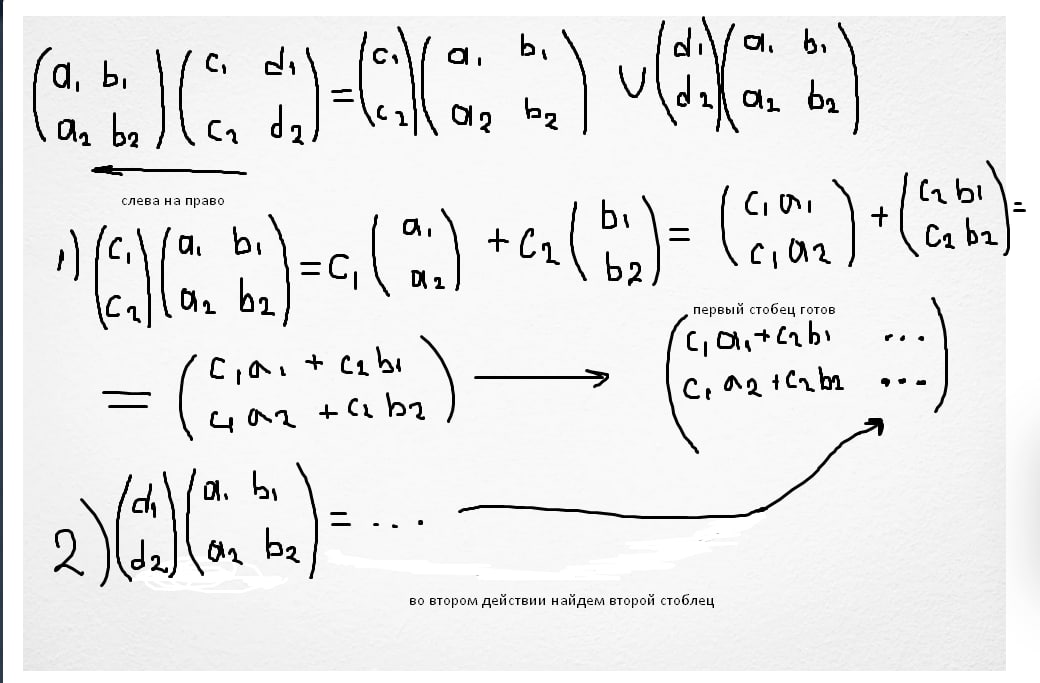 (a₁ b₁ a₂ b₂)(c₁ d₁ c₂ d₂) = (c₁ c₂)(a₁ b₁ a₂ b₂) ∪ (d₁ d₂)(a₁ b₁ a₂ b₂)
слева на право
1) (c₁ c₂)(a₁ b₁ a₂ b₂) = c₁(a₁ a₂) + c₂(b₁ b₂) = (c₁a₁ c₁a₂) + (c₂b₁ c₂b₂) =
первый стобец готов
= (c₁a₁ + c₂b₁ c₁a₂ + c₂b₂) → (c₁a₁ + c₂b₁ ... c₁a₂ + c₂b₂ ...)
2) (d₁ d₂)(a₁ b₁ a₂ b₂) = ...
во втором действии найдем второй стоблец